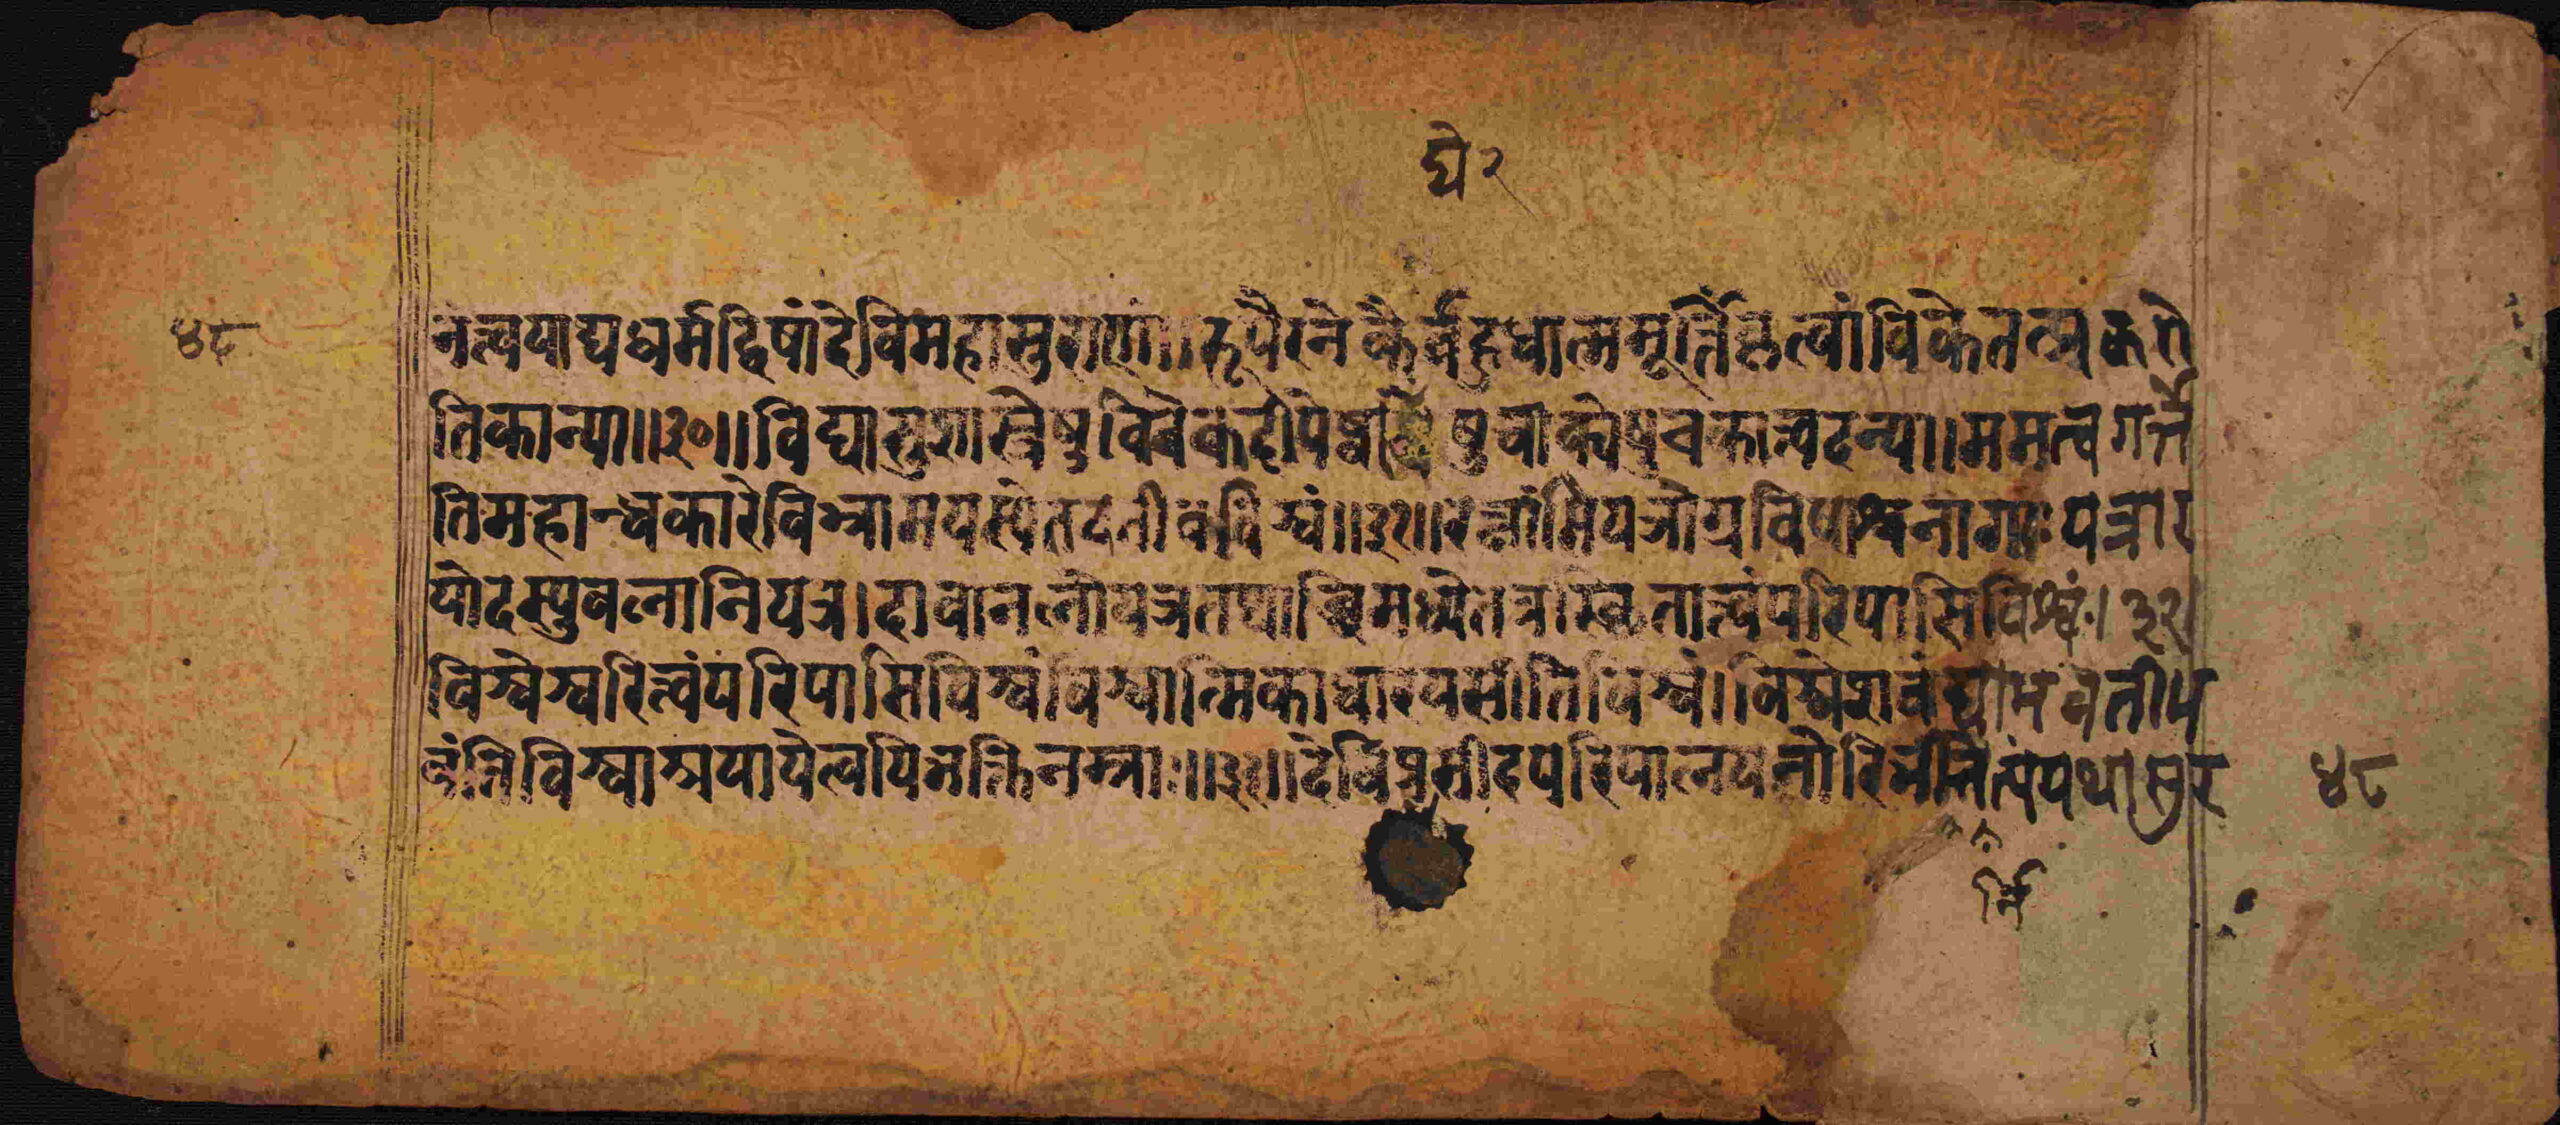 द्ये२
४८
नत्त्वयाद्यधर्मद्विषांदेविमहासुराणां॥रूपैरनेकैर्बहुधात्ममूर्तिंकृत्वांविकेतत्प्रकरो
तिकान्या॥३०॥विद्यासुशास्त्रेषुविवेकदीपेष्वाद्येषुवाक्येषुचकात्त्वदन्या॥ममत्वगर्त्ते
तिमहान्धकारेविभ्रामयस्येतदतीवविश्वं॥३१॥रक्षांसियत्रोग्रविषाश्चनागाःयत्रार
योदस्युवलानियत्र।दावानलोयत्रतथाब्धिमध्येतत्रस्थितात्त्वंपरिपासिविश्वं॥३२॥
विश्वेश्वरित्त्वंपरिपासिविश्वंविश्वात्मिकाधारयसीतिविश्वं।विश्वेशवंद्याभवतीभ
वंतिविश्वाश्रयायेत्वयिभक्तिनम्राः॥३३॥देविप्रसीदपरिपालयनोरिभीतेर्नित्यंयथासुर
४८
र्नि